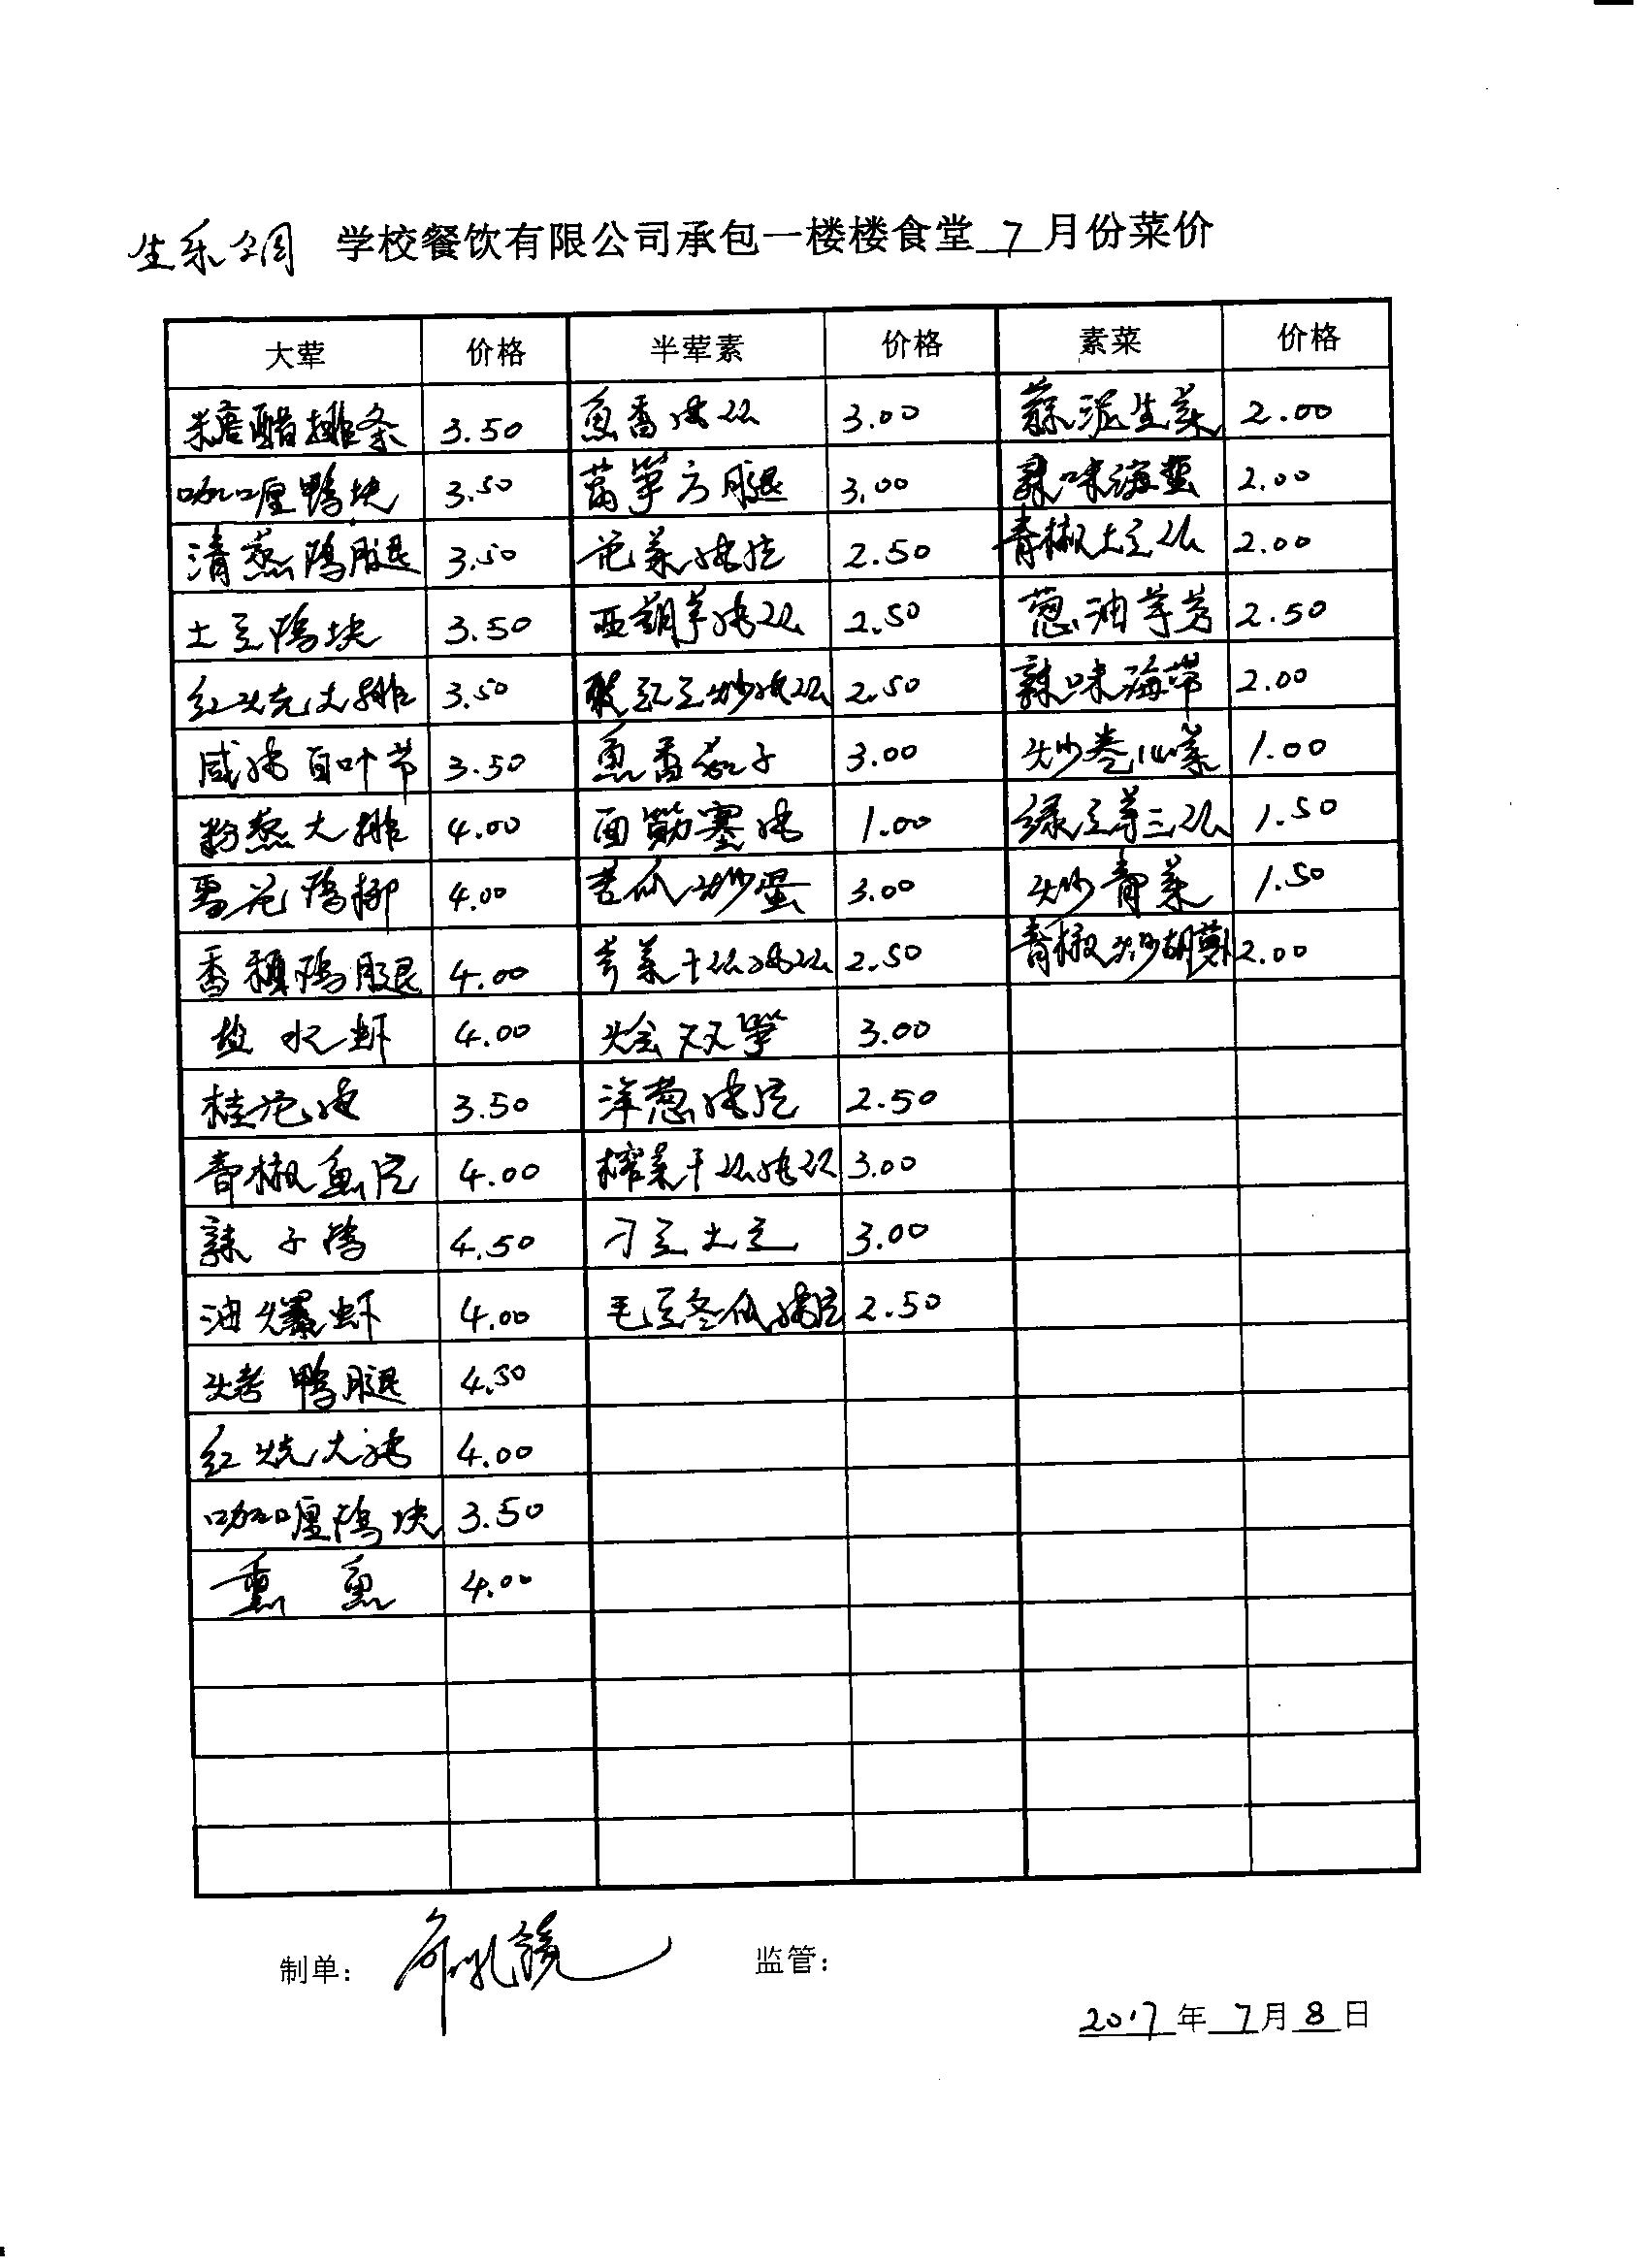 学校餐饮有限公司承包一楼楼食堂 7 月份菜价
大荤 价格 半荤素 价格 素菜 价格
糖醋排条 3.50 鱼香肉丝 3.00 蒜泥生菜 2.00
咖喱鸭块 3.50 莴笋方腿 3.00 辣味海蜇 2.00
清蒸鸡腿 3.50 花菜肉片 2.50 青椒土豆丝 2.00
土豆鸡块 3.50 西葫芦肉丝 2.50 葱油芋艿 2.50
红烧大排 3.50 酸豇豆炒肉丝 2.50 辣味海带 2.00
咸肉百叶节 3.50 鱼香茄子 3.00 炒卷心菜 1.00
粉蒸大排 4.00 面筋塞肉 1.00 绿豆芽三丝 1.50
雪花鸡柳 4.00 苦瓜炒蛋 3.00 炒青菜 1.50
香颗鸡腿 4.00 芹菜干丝肉丝 2.50 青椒炒胡萝卜 2.00
盐水虾 4.00 烩双笋 3.00
桂花肉 3.50 洋葱肉片 2.50
青椒鱼片 4.00 榨菜干丝肉丝 3.00
辣子鸡 4.50 刁豆土豆 3.00
油爆虾 4.00 毛豆冬瓜肉片 2.50
烤鸭腿 4.50
红烧大肉 4.00
咖喱鸡块 3.50
熏鱼 4.00
制单： 监管：
2017 年 7 月 8 日